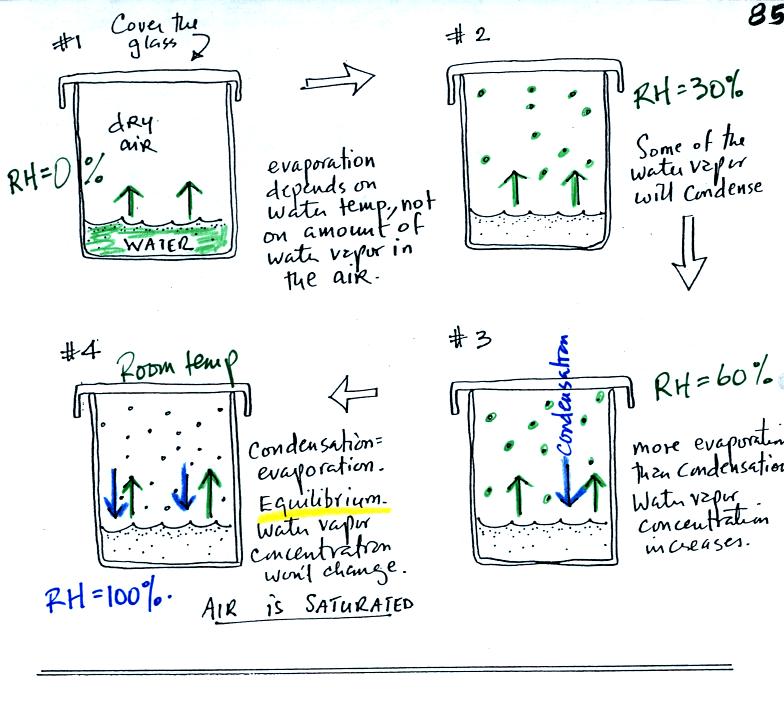 85
#1
Cover the
glass
dry
air
RH=0%
WATER
evaporation
depends on
water temp, not
on amount of
water vapor in
the air.
#2
RH=30%
Some of the
water vapor
will condense
#3
Condensation
RH=60%
more evaporation
than condensation
Water vapor
concentration
increases.
#4
Room temp
Condensation=
evaporation.
Equilibrium.
Water vapor
concentration
won't change.
RH=100%.
AIR is SATURATED